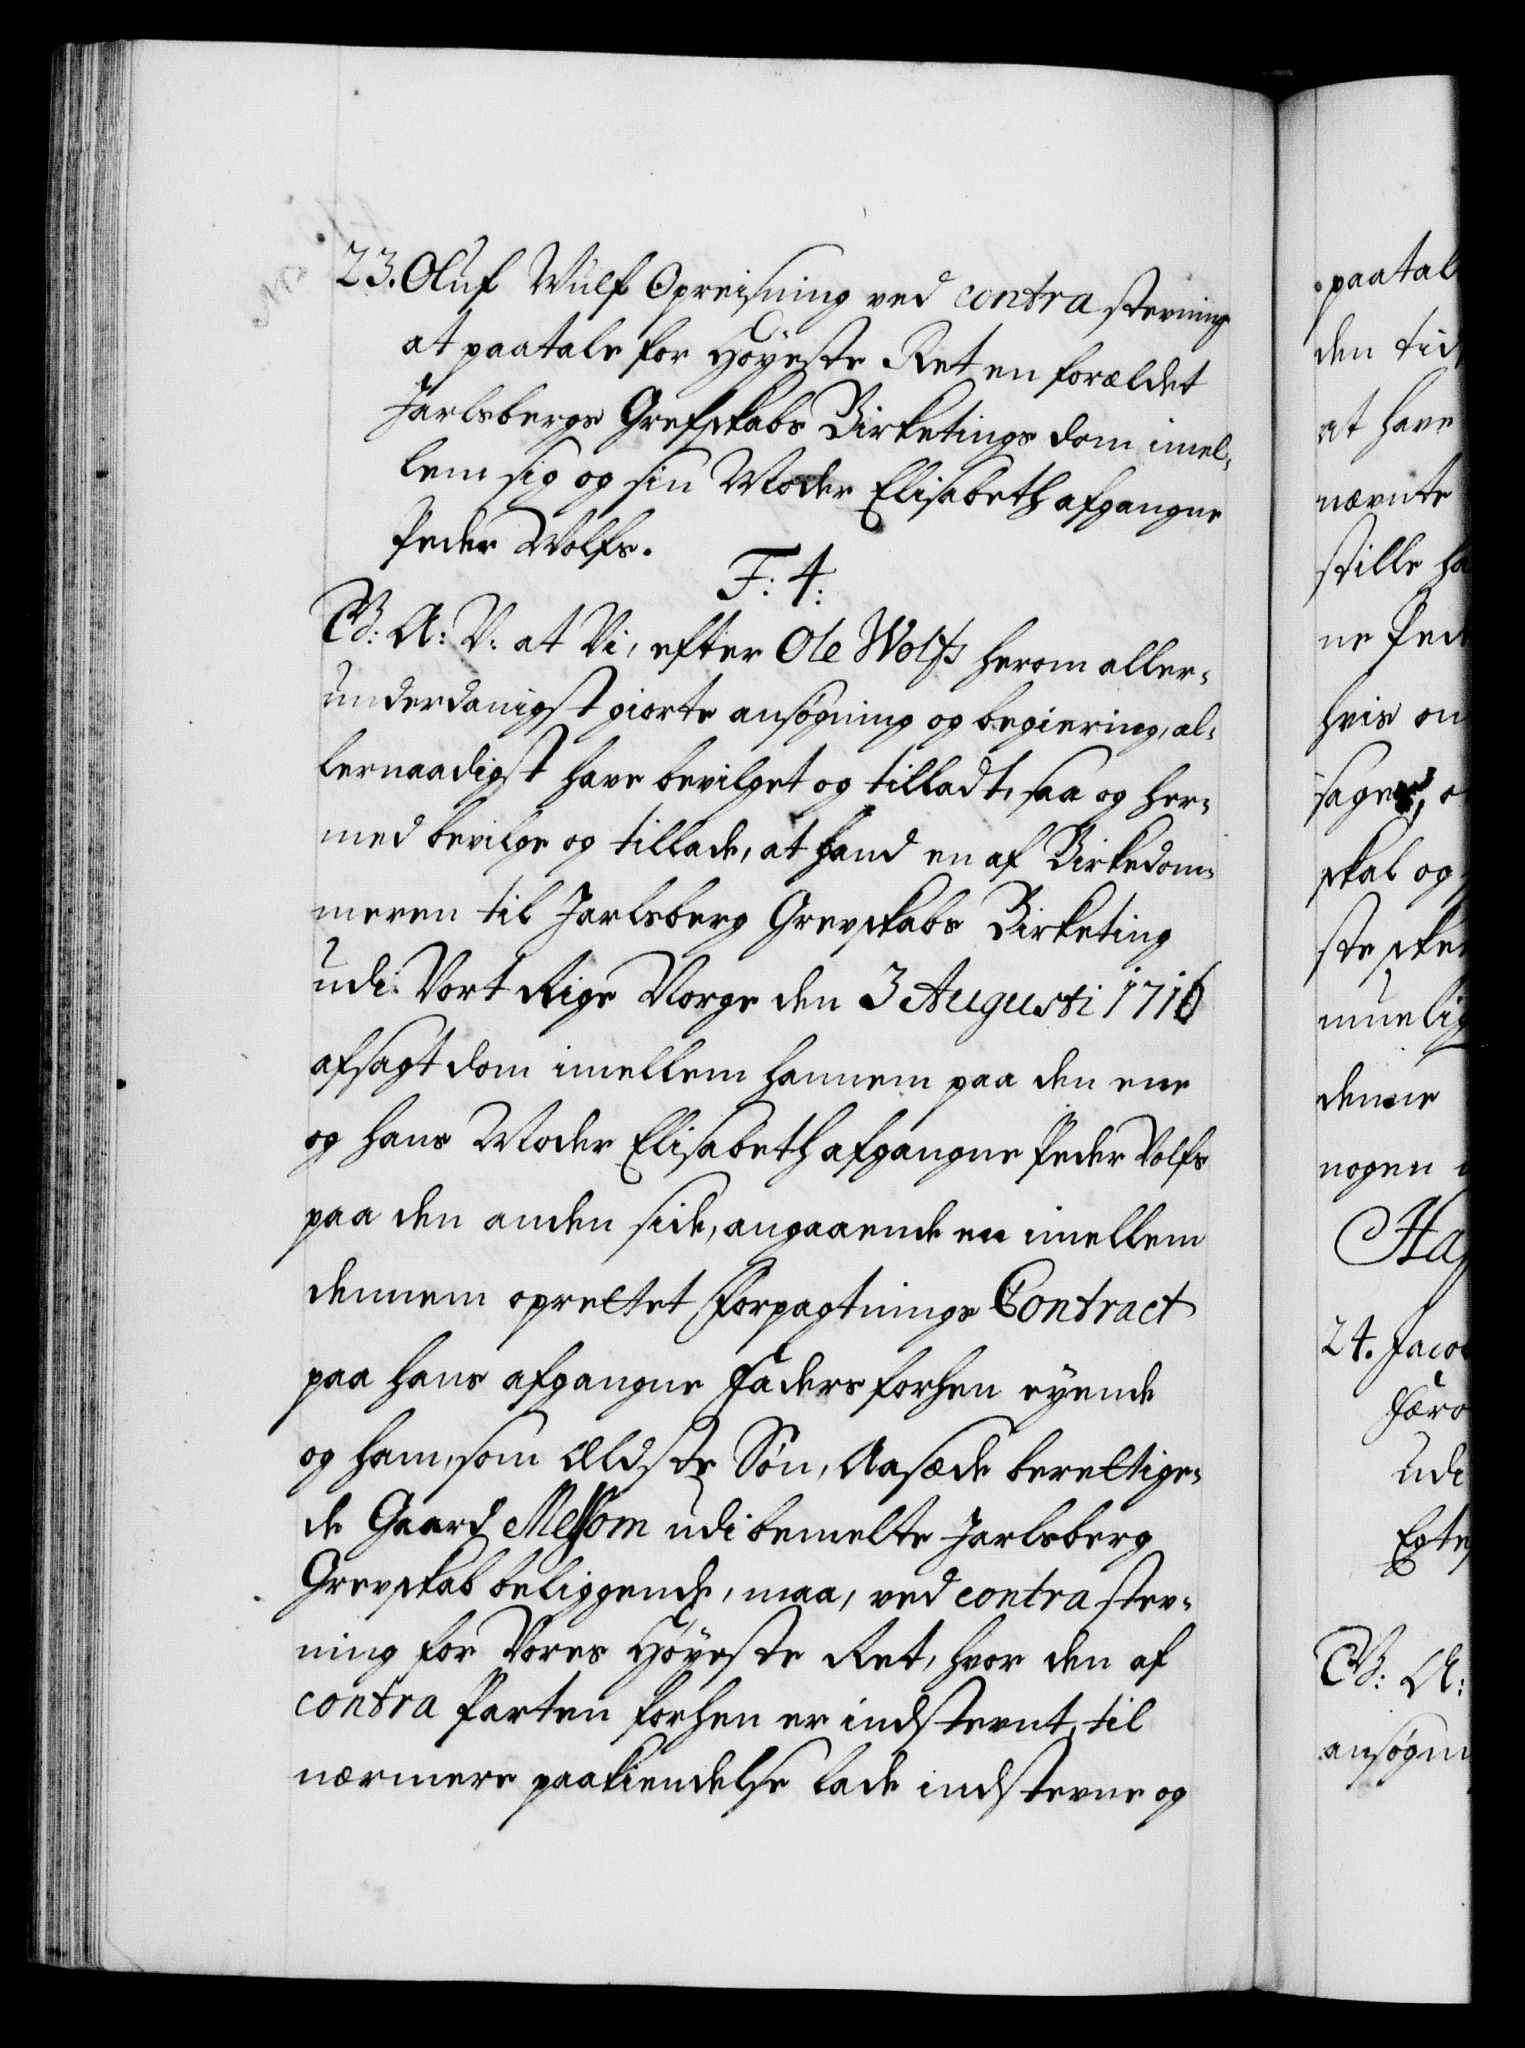 23. Oluf Wulf Opreisning ved contra stevning
at paatale for Höyeste Ret en forældet
Jarlsbergs Grefskabs Birketings dom imel-
lem sig og sin Moder Elisabeth afgangne
Peder Wolfs.
F: 4:
G: A: V: at Vi, efter Ole Wolfs herom aller-
underdanigst giorte ansøgning og begiering, al-
lernaadigst have bevilget og tilladt, saa og her-
med bevilge og tillade, at hand en af Birkedom-
meren til Jarlsberg Grevskabs Birketing
udi Vort Rige Norge den 3 Augusti 1716
afsagt dom imellem hannem paa den ene
og hans Moder Elisabeth afgangne Peder Volfs
paa den anden side, angaaende en imellem
dennem oprettet Forpagtnings Contract
paa hans afgangne Faders forhen eyende
og ham, som Ældste Søn, Aasæde berettige-
de Gaard Melsom udi bemelte Jarlsberg
Grevskab beliggende, maa, ved contra stev-
ning for Vores Höyeste Ret, hvor den af
contra Parten forhen er indstevnt, til
nærmere paakiendelse lade indstevne og
paatal
den tid
at have
nævnte
stille ha
ne Ped
hvis on
sager, o
skal og
ste ske
muelig
denne
nogen
Haf
24. Jacob
Færo
udi
Egte
G: A:
ansøgni